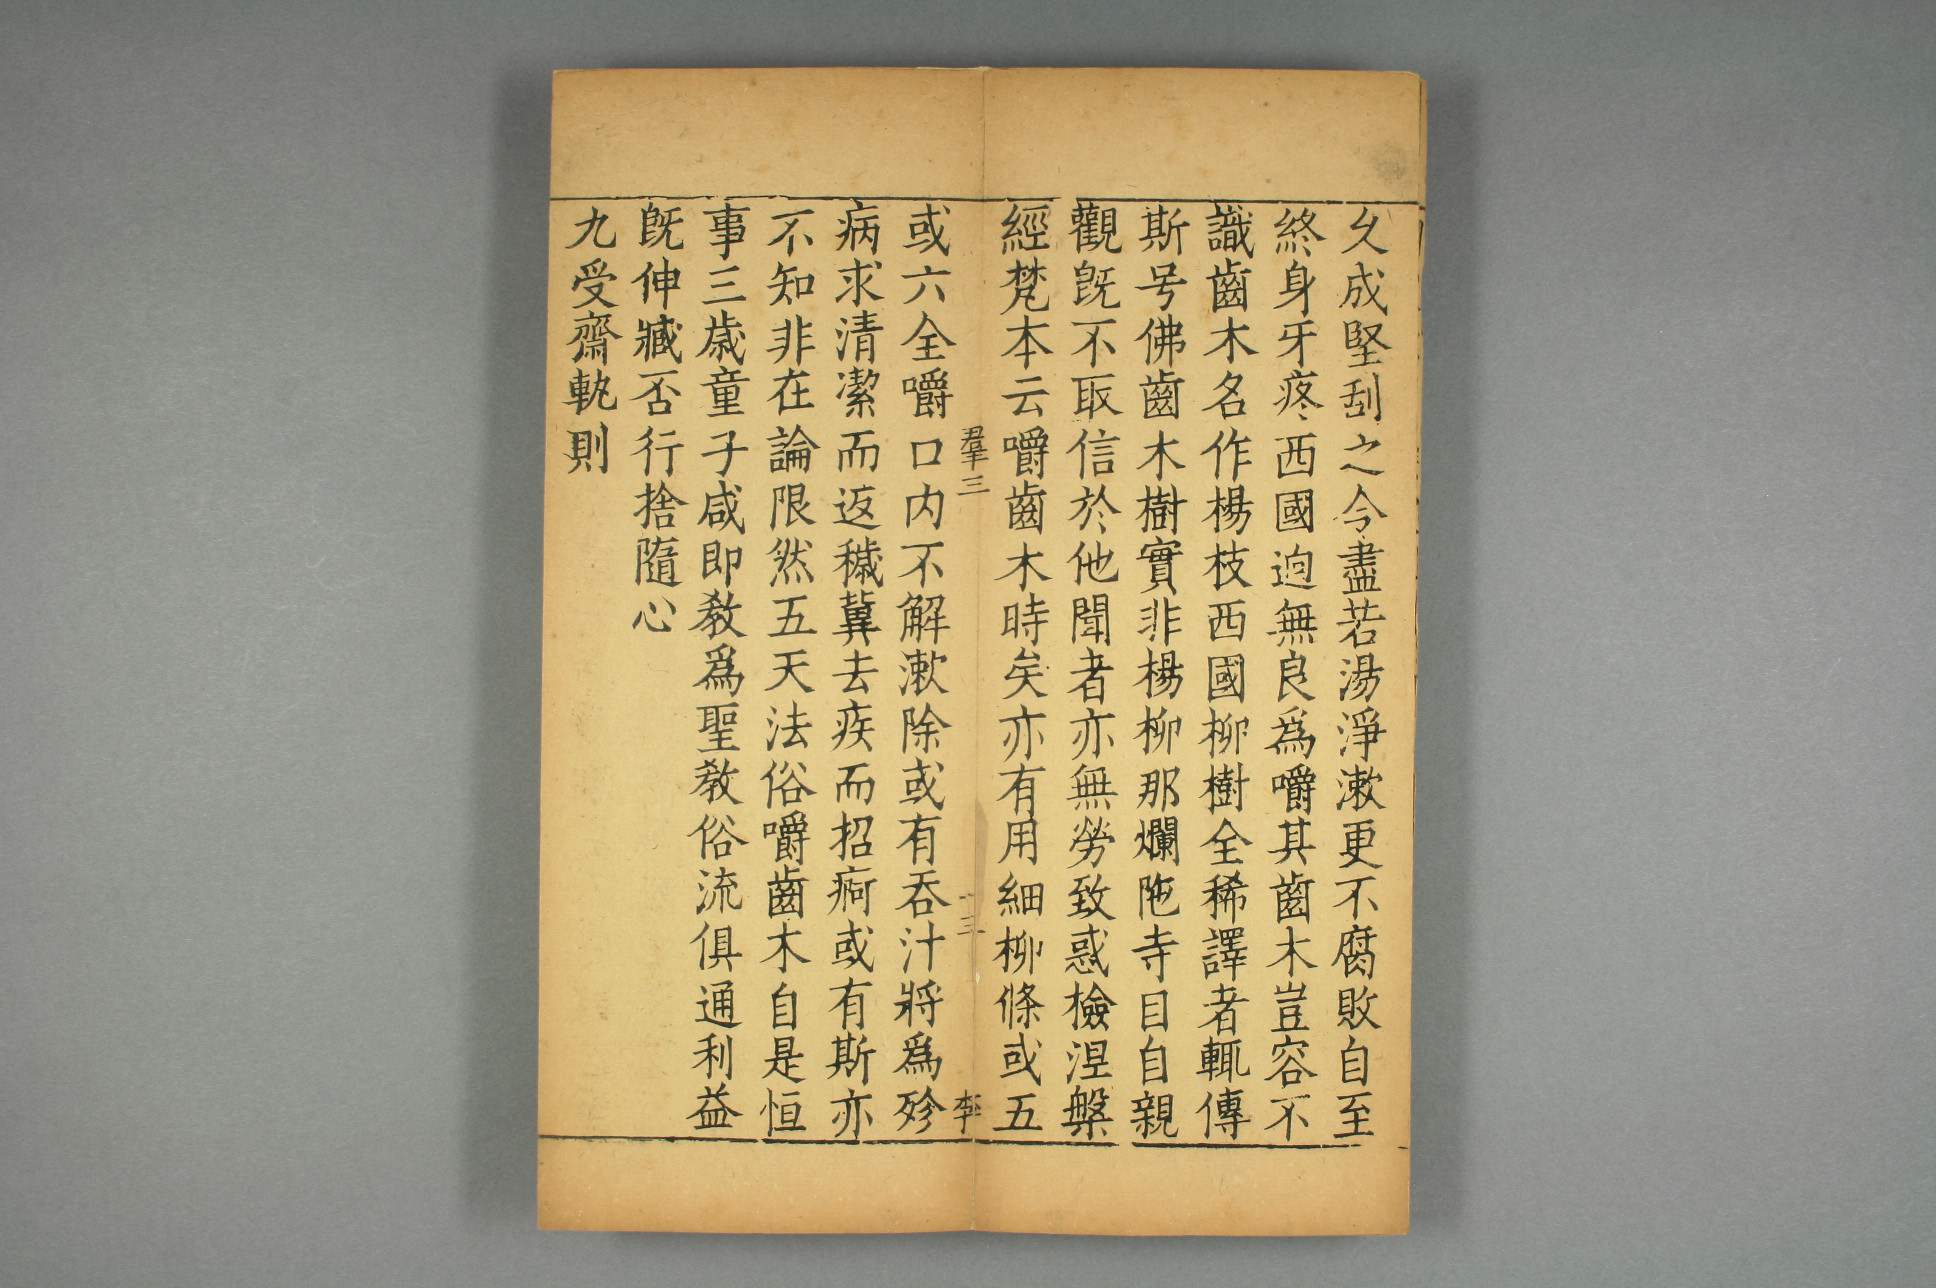 久成堅刮之令盡若湯淨漱更不腐敗自至
終身牙疼西國逈無良爲嚼其齒木豈容不
識齒木名作楊枝西國柳樹全稀譯者輒傳
斯号佛齒木樹實非楊柳那爛陁寺目自親
觀旣不取信於他聞者亦無勞致惑檢涅槃
經梵本云嚼齒木時矣亦有用細柳條或五
羣三
十三
李
或六全嚼口内不解漱除或有吞汁將爲殄
病求清潔而返穢冀去疾而招痾或有斯亦
不知非在論限然五天法俗嚼齒木自是恒
事三歲童子咸即教爲聖教俗流俱通利益
旣伸臧否行捨隨心
九受齋軌則